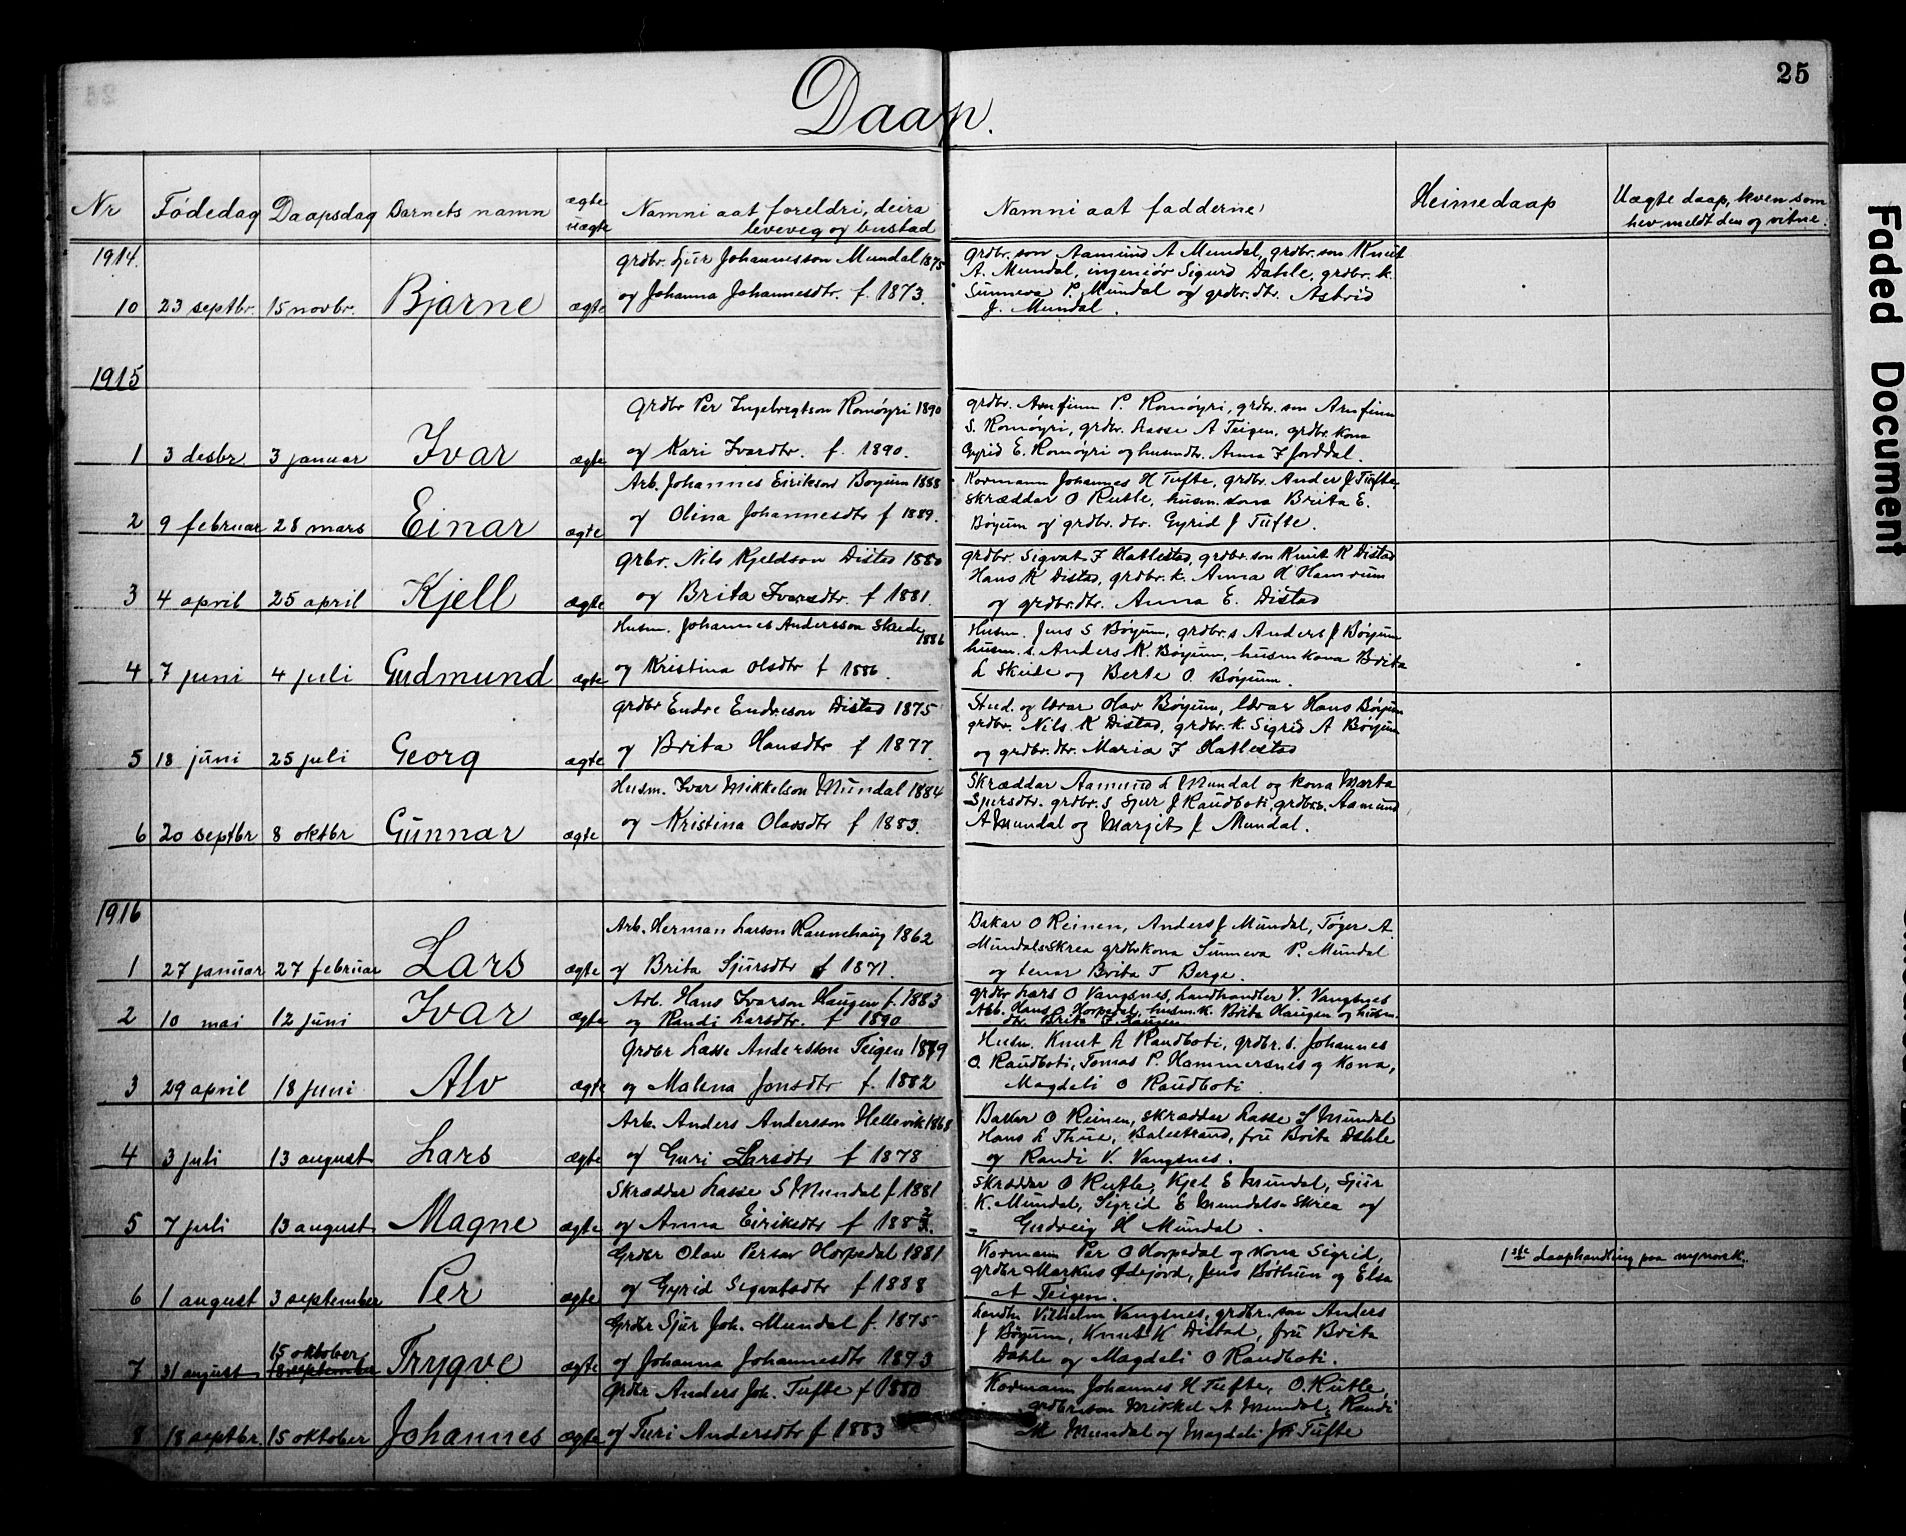 25
Daap.
Nr Fødedag Daapsdag Barnets namn ægte uægte Namni aat foreldri, deira leveveg og bustad Namni aat fadderne Heimedaap Uægte daap, kven som hev meldt den og vitne.
1914.
10 23 septbr. 15 novbr. Bjarne ægte
grdbr. Sjur Johannesson Mundal 1875
og Johanna Johannesdtr. f. 1873.
grdbr. son Aamund A Mundal, grdbr. son Knut
A. Mundal, ingeniør Sigurd Dahle, grdbr. k.
Sunneva P. Mundal og grdbr. dtr. Astrid
J. Mundal.
1915
1 3 desbr. 3 januar Ivar ægte
Grdbr Per Ingebregtson Romøyri 1890
og Kari Ivardtr. f. 1890.
grdbr. Arnfinn P. Romøyri, grdbr. son Arnfinn
S. Romøyri, grdbr. Lasse A Teigen, grdbr. kona
Gyrid E. Romøyri og husmdtr. Anna F Jorddal.
2 9 februar 28 mars Einar ægte
Arb. Johannes Eirikson Bøyum 1888
og Olina Johannesdtr f 1889.
Kormann Johannes H Tufte, grdbr. Ander J Tufte,
skræddar O Rutle, husm. kona Brita E.
Bøyum og grdbr. dtr. Gyrid J Tufte.
3 4 april 25 april Kjell ægte
Grbr. Nils Kjeldson Distad 1880
og Brita Ivarsdtr. f 1881.
grdbr. Sigvat F Hatlestad, grdbr. son Knut K Distad
Hans K Distad, grdbr. k. Anna H Hamrum
og grdbr. dtr. Anna E. Distad
4 7 juni 4 juli Gudmund ægte
Husm. Johannes Andersson Skeide
1886
og Kristina Olsdtr f 1886.
Husm. Jens S Bøyum, grdbr. s Anders J Bøyum
husm. s. Anders K. Bøyum, husmkona Brita
L Skeide og Berte O. Bøyum.
5 18 juni 25 juli Georg ægte
grdbr Endre Endreson Distad 1875
og Brita Hansdtr f 1877.
Stud. og lærar Olav Bøyum, lærar Hans Bøyum
grdbr. Nils K Distad, grdbr. k. Sigrid A Bøyum
og grdbr. dtr. Maria F Hatlestad
6 20 septbr 8 oktbr Gunnar ægte
Husm. Ivar Mikkelson Mundal 1884
og Kristina Olavsdtr f 1883.
Skræddar Aamund L Mundal og kona Marta
Sjursdtr. grdbr. s Sjur J Raudboti, grdbr. s. Aamund
A Mundal og Marjit J Mundal.
1916
1 27 januar 27 februar Lars ægte
Arb. Herman Larson Raunehaug 1862
og Brita Sjursdtr f 1871.
Bakar O Reinen, Anders J Mundal, Tøger A
Mundals-Skrea grdbrkona Sunneva P. Mundal
og tenar Brita T Berge.
2 10 mai 12 juni Ivar ægte
Arb. Hans Ivarson Haugen f. 1883
og Randi Larsdtr. f 1890
grdbr Lars O Vangsnes, Landhandler V. Vangsnes
Arb. Hans Horpedal, husm. k. Brita Haugen og husm.
dtr. Brita I. Haugen
3 29 april 18 juni Alv ægte
Grdbr Lasse Andersson Teigen 1879
og Malena Jonsdtr f. 1882
Husm. Knut L Raudboti, grdbr. s. Johannes
O. Raudboti, Tomas P. Hammersnes og kona,
Magdeli O Raudboti
4 3 juli 13 august Lars ægte
Arb. Anders Andersson Hellevik 1868
og Guri Larsdtr f 1878
Bakar O Reinen, skræddar Lasse S Mundal
Hans L Thue, Balestrand, fru Brita Dahle
og Randi V. Vangsnes.
5 7 juli 13 august Magne ægte
Skræddar Lasse S Mundal f. 1881
og Anna Eiriksdtr f 1882.
skræddar O Rutle, Kjel E Mundal, Sjur
K. Mundal, Sigrid E Mundals-Skrea og
Gudveig H Mundal.
6 1 august 3 september Per ægte
Grdbr Olav Person Horpedal 1881
og Gyrid Sigvatsdtr f 1888
Kormann Per O Horpedal og kona Sigrid,
grdbr Markus Ødejord, Jens Børhum og Elsa
A Teigen.
1ste daaphandling paa nynorsk.
7 31 august 15 oktober 18 september Trygve ægte
Grdbr Sjur Joh. Mundal f. 1875
og Johanna Johannesdtr 1873
Landh. Vilhelm Vangsnes, grdbr. son Anders
J Bøyum, Knut K Distad, fru Brita
Dahle og Magdeli O Raudboti.
8 18 septbr. 15 oktober Johannes ægte
Grdbr Anders Joh. Tufte f 1880
og Turi Andersdtr f 1883
Kormann Johannes H Tufte, O. Rutle,
grdbrson Mikkel A Mundal, Randi
M Mundal og Magdeli Joh Tufte
Faded Document